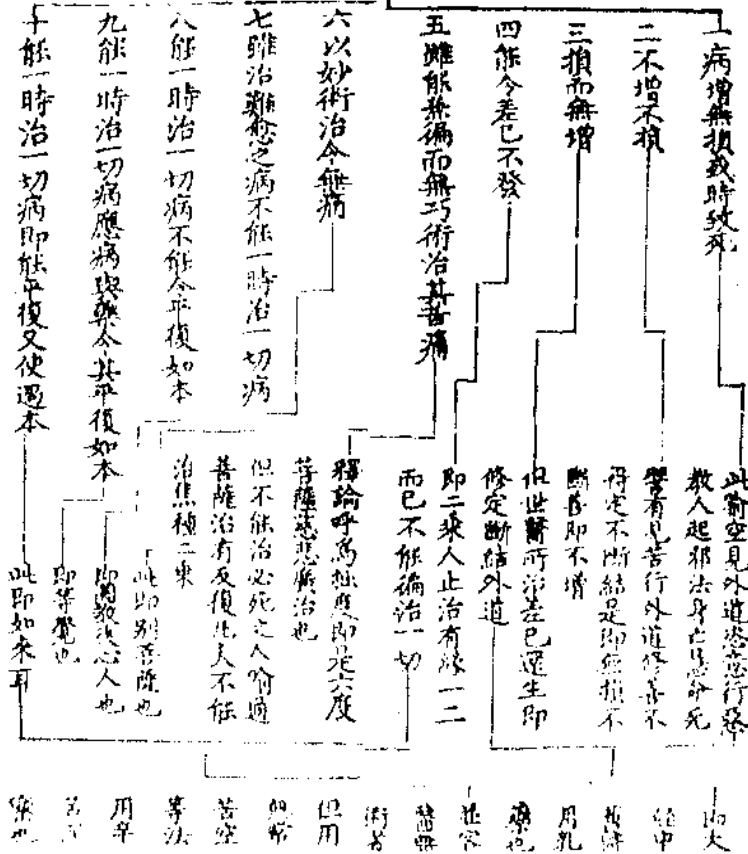 一病增無損或時致死
二不增不損
三損而無增
四能令差已不發
五雖能兼徧而無巧術治其苦痛
六以妙術治令無痛
七雖治難愈之病不能一時治一切病
八能一時治一切病不能令平復如本
九能一時治一切病應病與藥令其平復如本
十能一時治一切病即能平復又使過本
此喻空見外道恣意行惡
教人起邪法身亡慧命死
譬有見苦行外道修善不
得定不斷結是即無損不
斷善即不增
但世醫所治差已還生即
修定斷結外道
即二乘人止治有緣一二
而已不能徧治一切
釋論呼為拙度即是六度
菩薩慈悲廣治也
但不能治必死之人喻通
菩薩治有反復凡夫不能
治焦種二乘
此即別菩薩也
即圓教初心人也
即等覺也
此即如來耳
如大
經中
舊醫
用乳
藥也
醫無
術者
但用
苦空
等法
用辛
苦
藥也